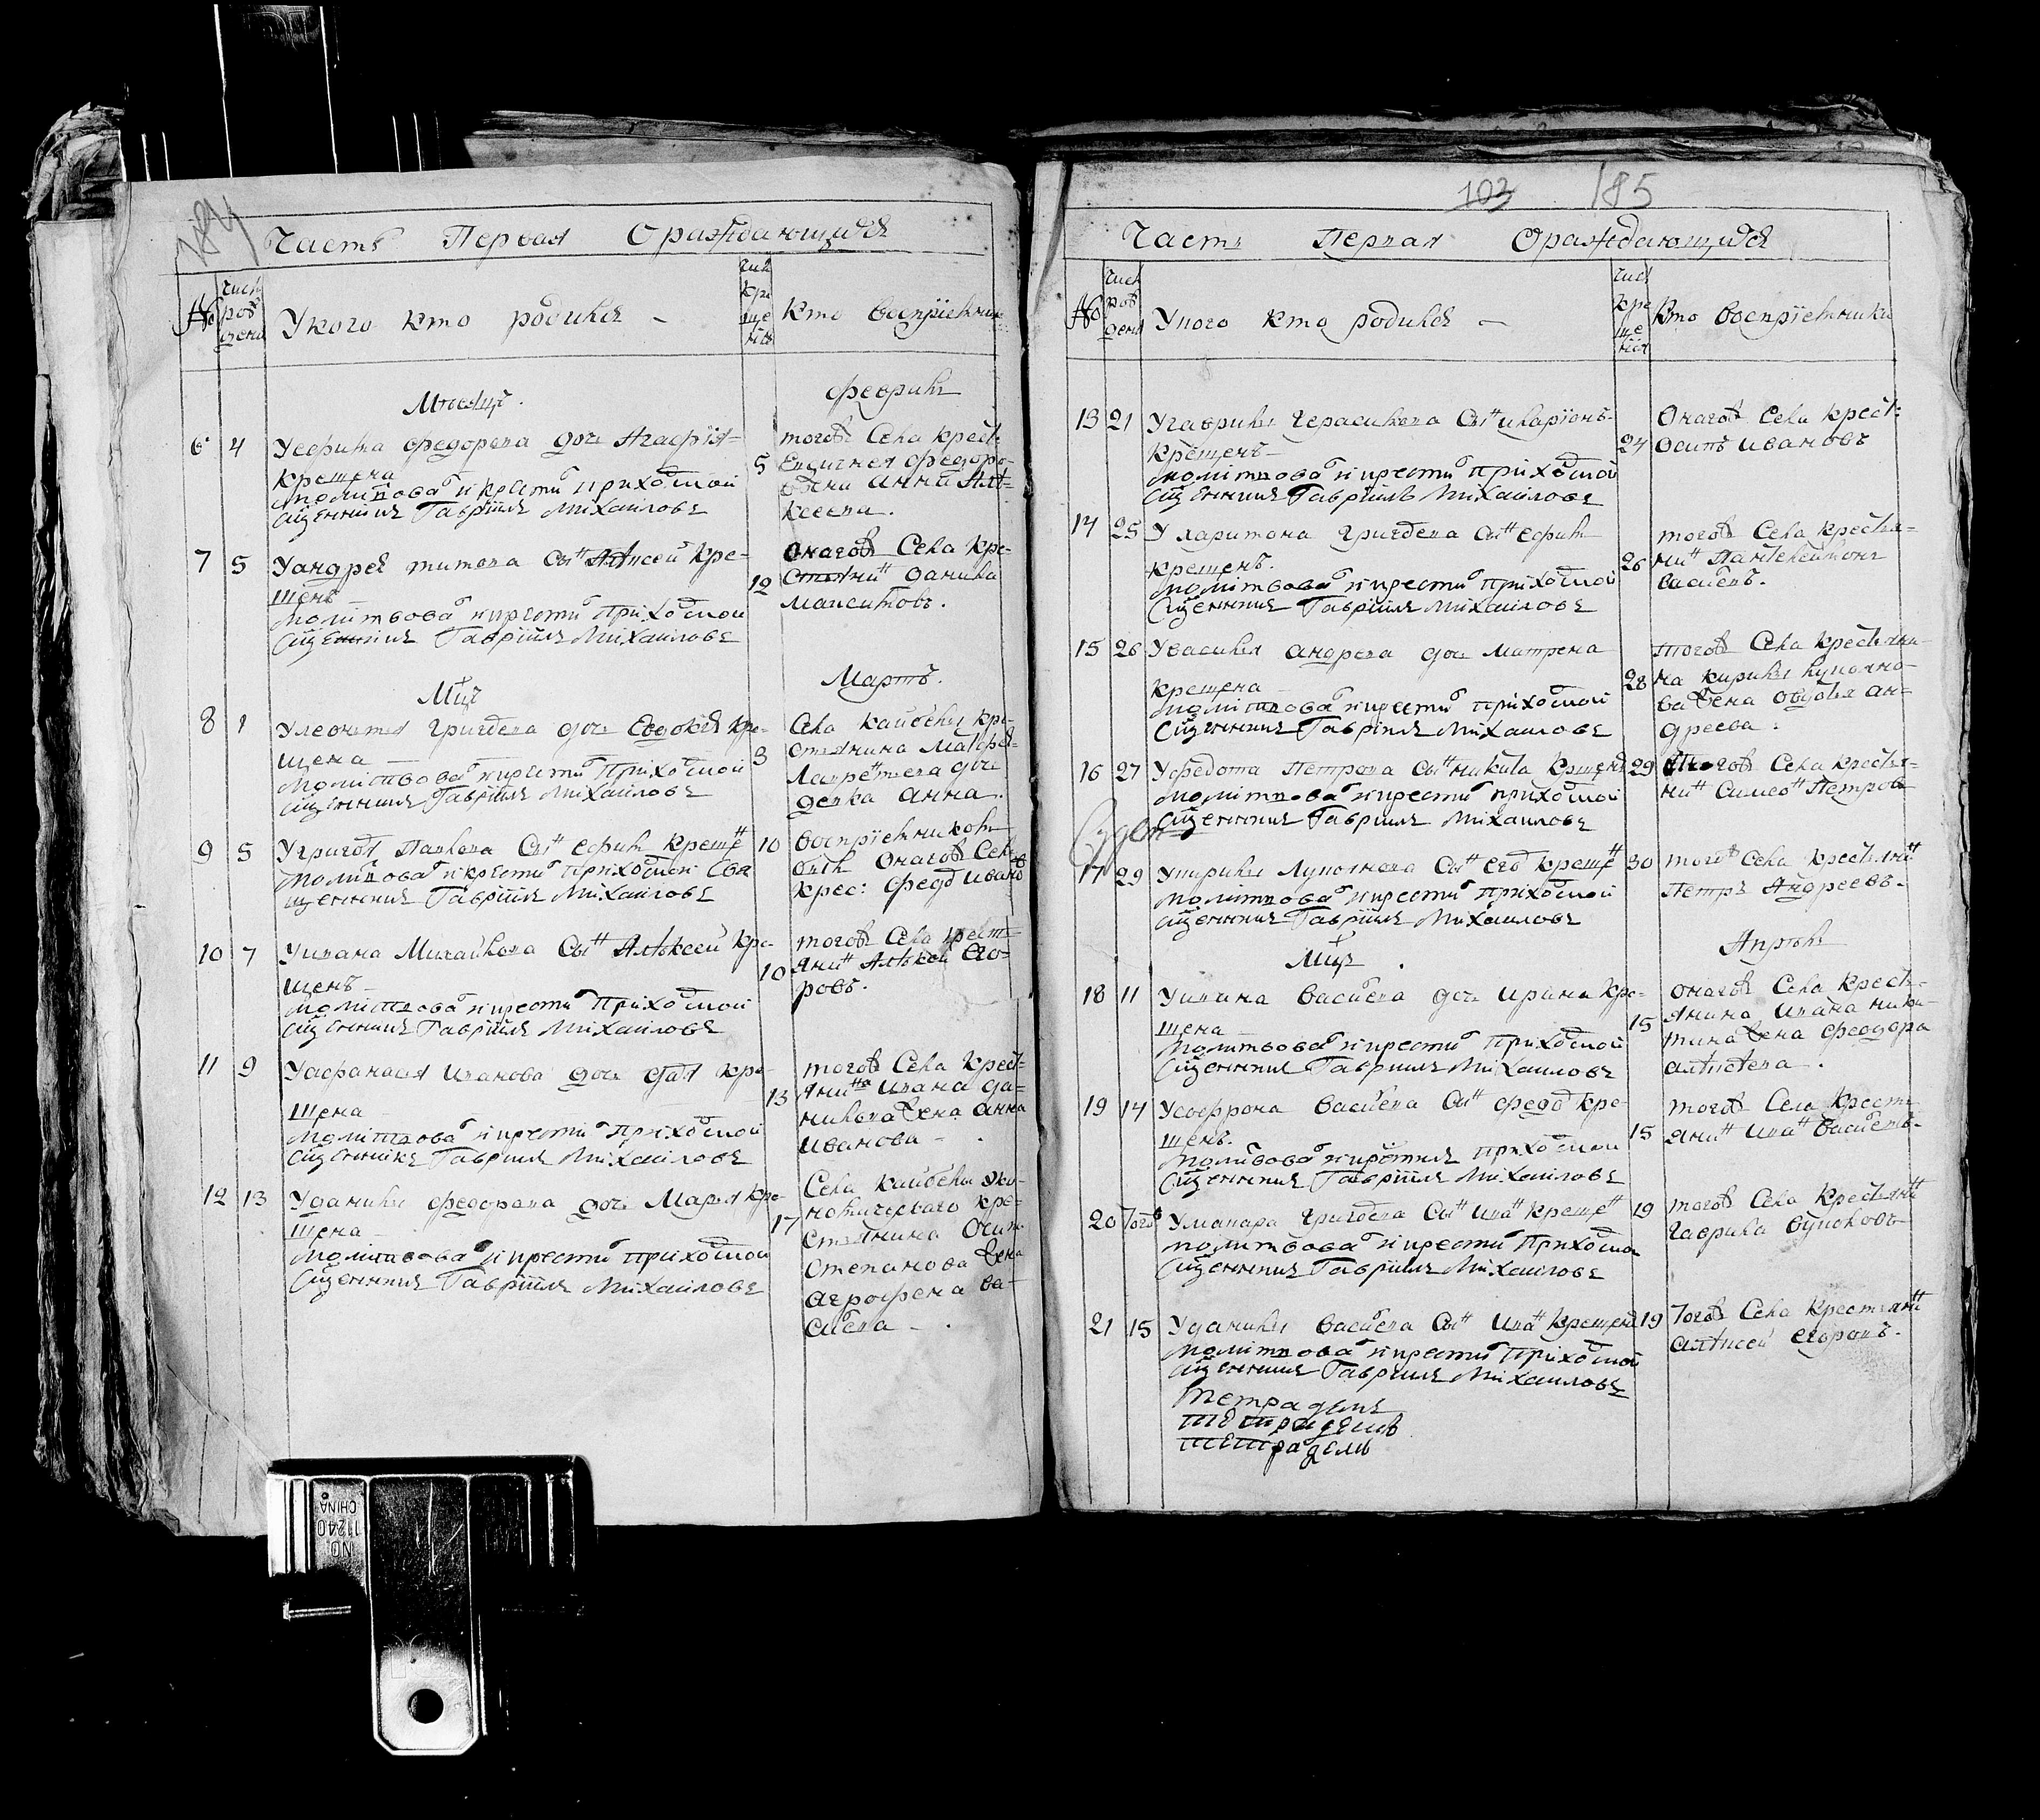 184
Часть Первая Ораждающихся
№
числ рождени
У кого кто родился
числ креще нія
кто воспріемник
Месяцъ Февраль
6 4 Уефима федорова дочь Агафія
крещена
молитвовал и крестил приходской
священник Гавріил Михаилов
5 тогож села крест:
Евдокима федоро
Анна Але-
ксеева.
7 5 Уандрея титова сын Алексей кре-
щенъ
молитвовал и крестил приходской
священник Гавріил Михаилов
12 Онагож Села кре-
стянин данила
максимовъ.
Мцъ Мартъ.
8 1 Улеонтия григорева дочь Евдокия кре-
щена
молитвовал и крестил приходской
священник Гавріил Михаилов
3 Села кайбелы кре-
стянина Матфея
Лаврентева дочь
девка анна.
9 5 Угригоря Павлова сын ефим крещен
молитвовал и крестил приходской свя
щенник Гавріил Михаилов
10 воспріемником
был Онагож Села
крес: федор Иванов
10 7 Уивана Михайлова сын Алексей кре-
щенъ
молитвовал и крестил приходской
священник Гавріил Михаилов
10 тогож Села крест-
янин Алексей Его-
ровъ.
11 9 Уафанасия Иванова дочь кре-
щена
молитвовал и крестил приходской
священник Гавріил Михаилов
13 тогож Села Крест-
янина ивана да-
нилова жена анна
иванова
12 13 Уданилы федорова дочь Марья кре-
щена
молитвовал и крестил приходской
священник Гавріил Михаилов
17 Села кайбелы эко-
номическаго кре-
стянина Осипа
степанова жена
аграфена ва-
силева
103 185
Часть Первая Ораждающихся
№
числ рождени
У кого кто родился
числ кре ще нія
Кто воспріемники
13 21 Угаврилы Герасимова сын иларіонъ
крещенъ
молитвовал и крестил приходской
священник Гавріил Михаилов
24 Онагож Села крест:
Осипъ ивановъ
14 25 Ухаритона григорева сын ефим
крещенъ.
молитвовал и крестил приходской
Священник Гавріил Михаилов
26 тогож Села крестья-
нин Пантелеймон
васильевъ.
15 26 Увасилья андреева дочь матрена
крещена
молитвовал и крестил приходской
Священник Гавріил Михаилов
28 тогож Села крестьяни-
на кирилы лупояно-
ва жена овдотья ан-
дреева.
16 27 Уфедота Петрова сын никита крещенъ
молитвовал и крестил приходской
Священник Гавріил Михаилов
29 тогож Села крестья-
нин Симеон Петров
17 29 Укирилы Лупоянова сын егор крещен
молитвовал и крестил приходской
священник Гавріил Михаилов
30 тогож Села Крестьянин
Петръ Андреевъ.
Мцъ Апрель
18 11 Уивана василева дочь ирина кре-
щена
молитвовал и крестил приходской
Священник Гавріил Михаилов
15 онагож Села крест-
янина ивана ники-
тина жена федора
алексеева.
19 14 Усофрона васильева сын федор кре-
щенъ.
молитвовал и приходской
Священник Гавріил Михаилов
15 тогож Села крест-
янин иван василевъ.
20 Тогож Умакара григорева сын иван крещен
молитвовал и крестил приходской
Священник Гавріил Михаилов
19 тогож Села крестьянин
гаврила
21 15 Уданилы васильева сын иван крещенъ
молитвовал и крестил приходской
священник Гавріил Михаилов
19 Тогож Села Крестьянин
алексей егоровъ.
NO. 11240
CHINA